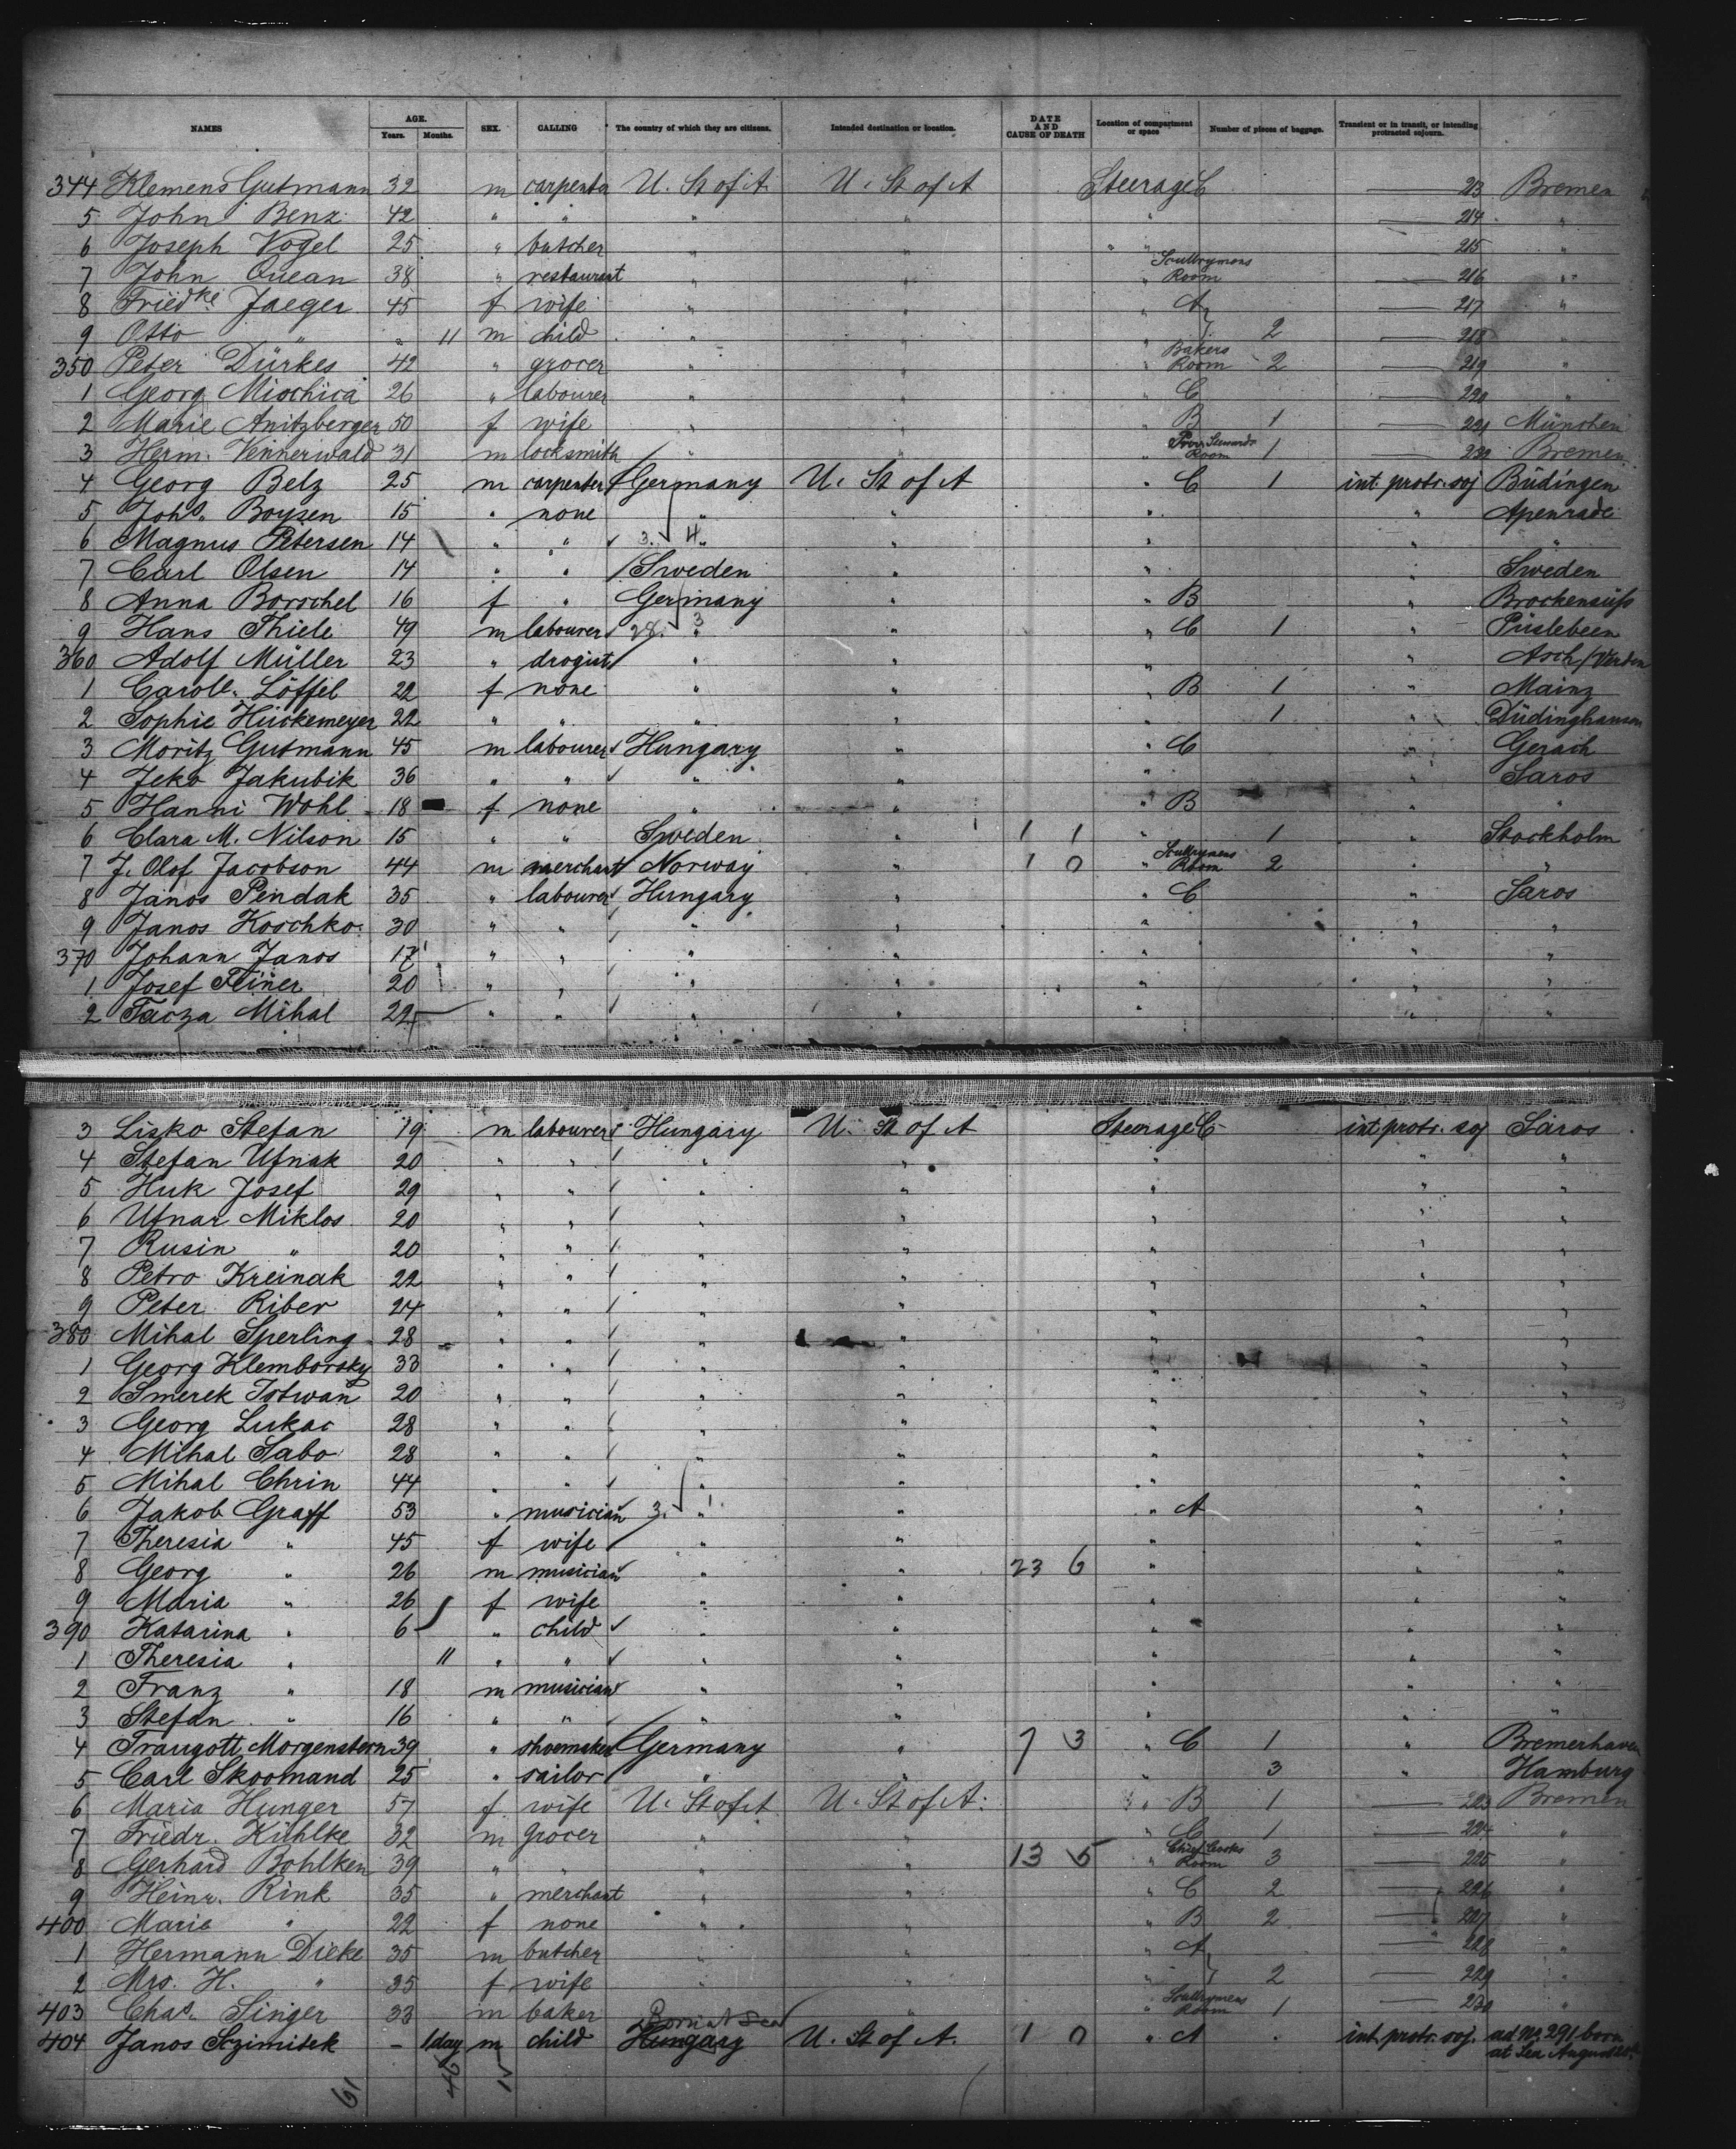 NAMES AGE. Years. Months. SEX. CALLING The country of which they are citizens. Intended destination or location. DATE AND CAUSE OF DEATH Location of compartment or space Number of pieces of baggage. Transient or in transit, or intending protracted sojourn.
344 Klemens Gutmann 32 m carpenter U. St of A. U. St of A Steerage C — 213 Bremen
5 John Benz 42 " " " " " — 214 "
6 Joseph Vogel 25 " butcher " " " " — 215 "
7 John Quean 38 " restaurant " " " Scullrymens Room — 216 "
8 Friedke Jaeger 45 f wife " " " A — 217 "
9 Otto " " 11 m child " " " 2 — 218 "
350 Peter Dürkes 42 " grocer " " " Bakers Room 2 — 219 "
1 Georg Miochica 26 " labourer " " " C — 220 "
2 Marie Anitzberger 50 f wife " " " B 1 — 221 München
3 Herm. Vennerwald 31 m locksmith " " " Room 1 — 222 Bremen
4 Georg Belz 25 m carpenter Germany U. St of A " C 1 int. protr. soj Büdingen
5 Johs. Boysen 15 " none " " " " Apenrade
6 Magnus Petersen 14 " " 3. 4 " " " " "
7 Carl Olsen 14 " " Sweden " " " Sweden
8 Anna Borschel 16 f " Germany " " B " Brockensüß
9 Hans Thiele 49 m labourer 28. 3 " " " C 1 "
360 Adolf Müller 23 " drogist " " " " Asch/Verden
1 Carole. Löffel 22 f none " " " B 1 " Mainz
2 Sophie Hückemeyer 22 " " " " " 1 " Düdinghausen
3 Moritz Gutmann 45 m labourer Hungary " " C " Gerach
4 Jeko Jakubik 36 " " " " " " Saros
5 Hanni Wohl 18 f none " " " B " "
6 Clara M. Nilson 15 " " Sweden " 1 1 " 1 " Stockholm
7 J. Olof Jacobson 44 m merchant Norway " 1 0 " Scullrymens Room 2 " "
8 Janos Pendak 35 " labourer Hungary " " C " Saros
9 Janos Koschko 30 " " " " " " "
370 Johann Janos 17 " " " " " " "
1 Josef Feiner 20 " " " " " " "
2 Tacza Mihal 22 " " " " " " "
3 Lisko Stefan 19 m labourer Hungary U. St of A Steerage C int protr. soj Saros
4 Stefan Ufnak 20 " " " " " " "
5 Huk Josef 29 " " " " " " "
6 Ufnar Miklos 20 " " " " " " "
7 Rusin " 20 " " " " " " "
8 Petro Kreinak 22 " " " " " " "
9 Peter Riber 24 " " " " " " "
380 Mihal Sperling 28 " " " " " " "
1 Georg Klemborsky 33 " " " " " " "
2 Smerek Istwan 20 " " " " " " "
3 Georg Lukac 28 " " " " " " "
4 Mihal Sabo 28 " " " " " " "
5 Mihal Chrin 44 " " " " " " "
6 Jakob Graff 53 " musician 3. 1 " " " A " "
7 Theresia " 45 f wife " " " " "
8 Georg " 26 m musician " " 23 6 " " "
9 Maria " 26 f wife " " " " "
390 Katarina " 6 " child " " " " "
1 Theresia " 11 " " " " " " "
2 Franz " 18 m musician " " " " "
3 Stefan " 16 " " " " " " "
4 Traugott Morgenstern 39 " shoemaker Germany " 7 3 " C 1 " Bremerhaven
5 Carl Skoomand 25 " sailor " " " 3 " Hamburg
6 Maria Hunger 57 f wife U. St of A U. St of A. " B 1 — 223 Bremen
7 Friedr. Kühlke 32 m grocer " " " C 1 — 224 "
8 Gerhard Bohlken 39 " " " " 13 5 " Chief Cooks Room 3 — 225 "
9 Heinr. Rink 35 " merchant " " " C 2 — 226 "
400 Marie " 22 f none " " " B 2 — 227 "
1 Hermann Dieke 35 m butcher " " " A — 228 "
2 Mrs. H. " 35 f wife " " " 2 — 229 "
403 Chas. Singer 33 m baker " " " Scullrymens Room 1 — 230 "
Born at Sea
404 Janos Szimitek - 1 day m child Hungary U. St of A. 1 0 " A int. protr. soj. ad No. 291 born
at Sea August
61